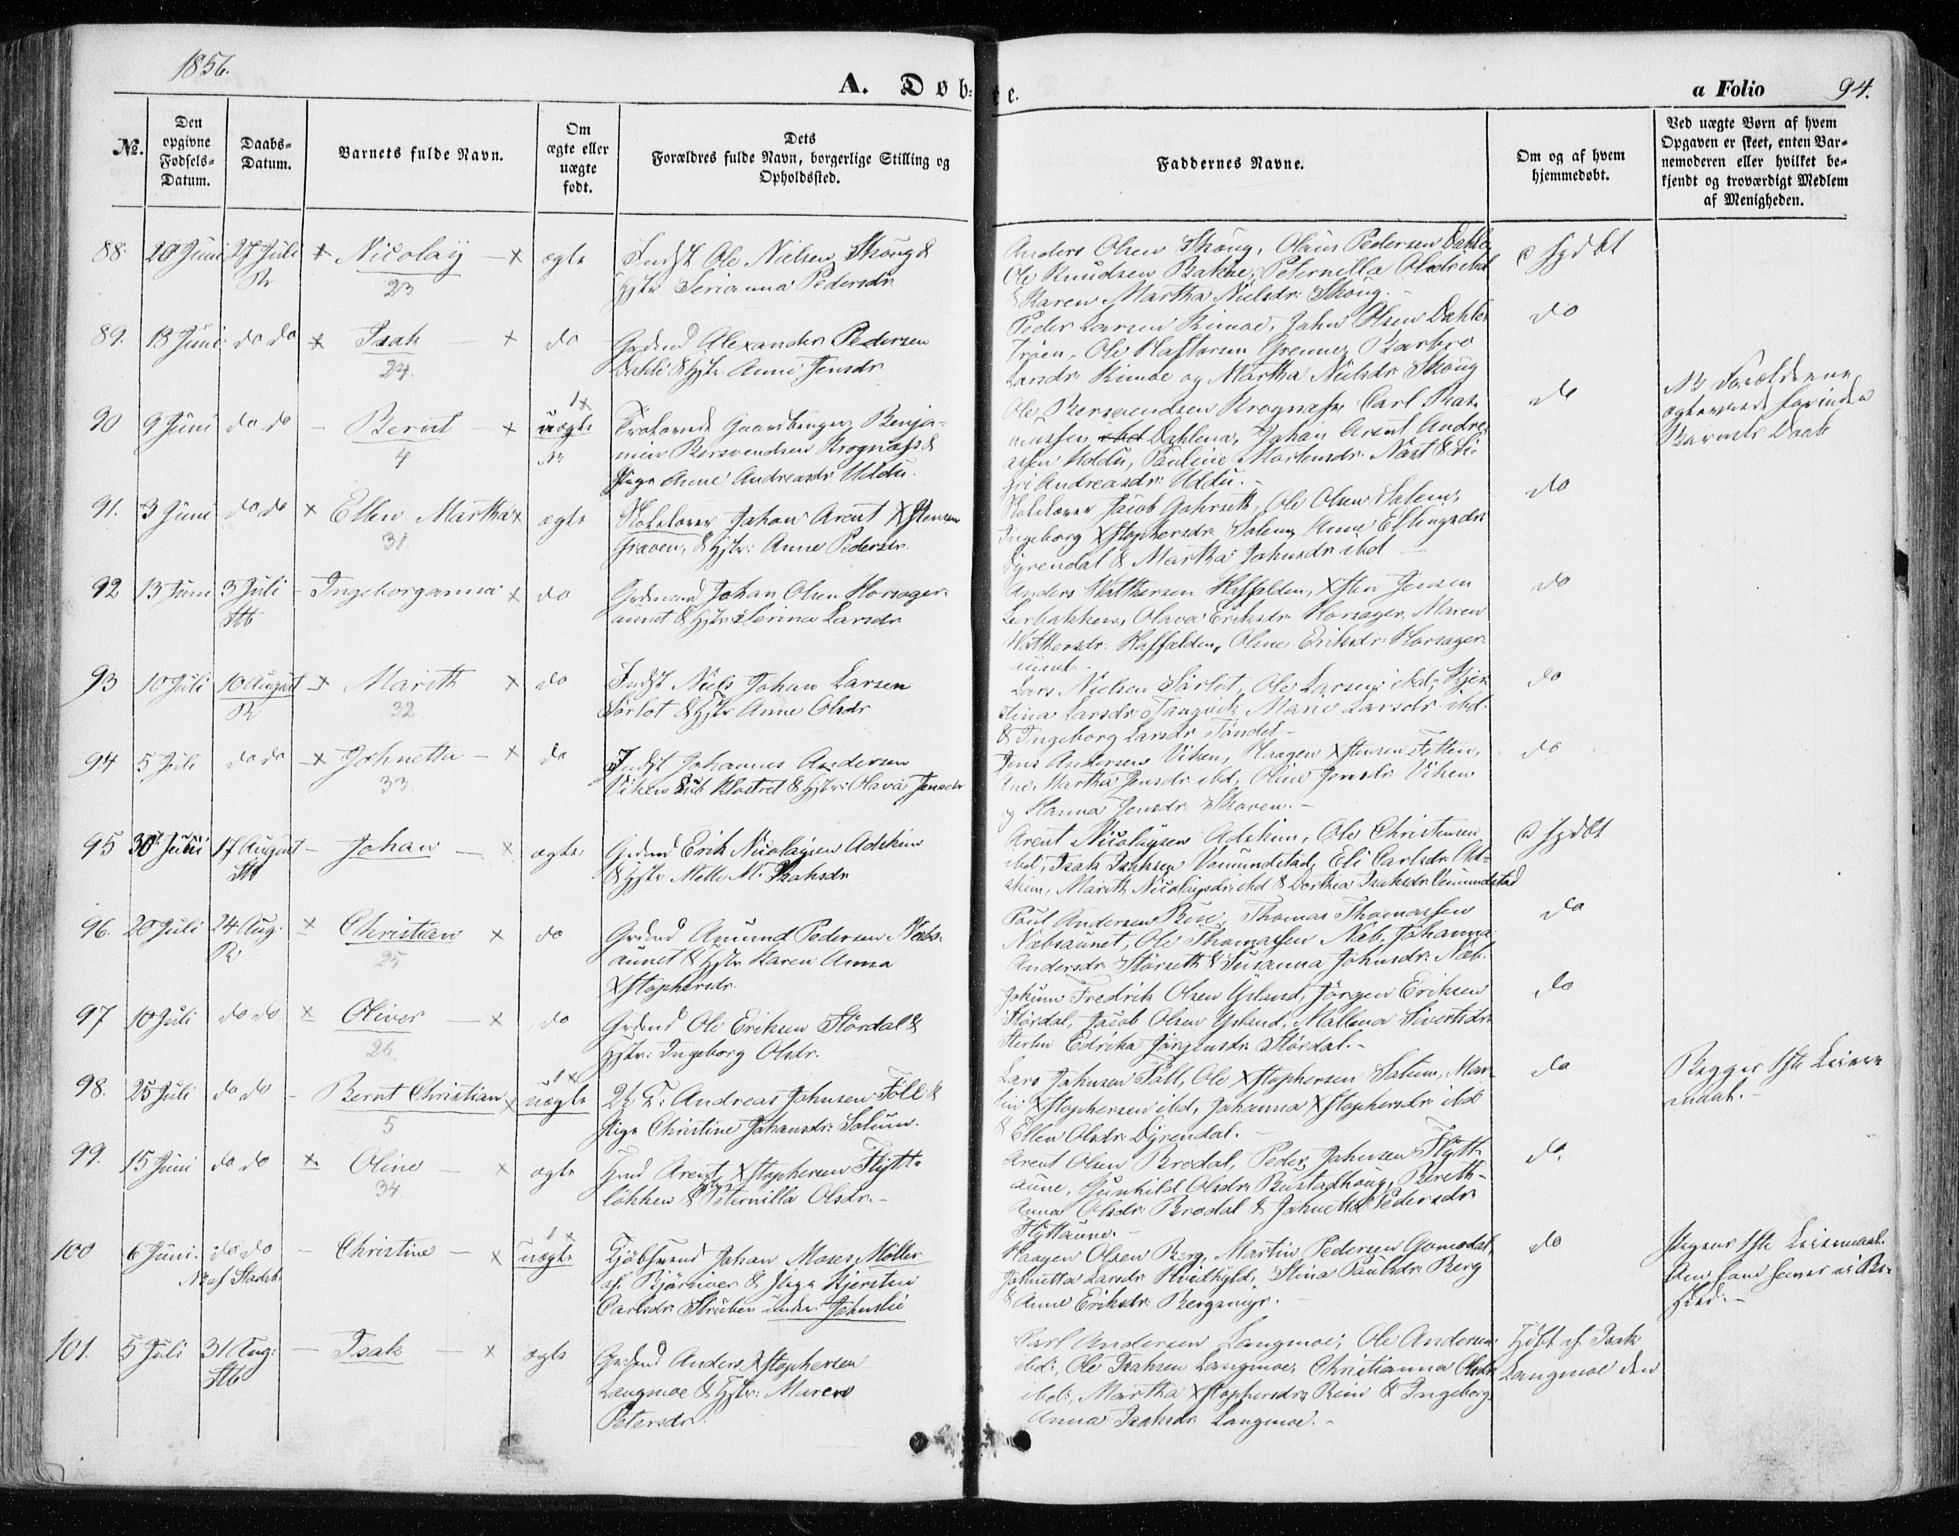 1856.
A. Døb-
te.
a Folio 94.
No.
Den opgivne Fødsels-Datum.
Daabs-Datum.
Barnets fulde Navn.
Om ægte eller uægte født.
Dets Forældres fulde Navn, borgerlige Stilling og Opholdssted.
Faddernes Navne.
Om og af hvem hjemmedøbt.
Ved uægte Børn af hvem Opgaven er skeet, enten Barnemoderen eller hvilket bekjendt og troværdigt Medlem af Menigheden.
88. 20 Juni 27 Juli R x Nicolay x ægte
23
Indst Ole Nielsen Skoug &
Hstr Serianna Pedersdr
Anders Olsen Skoug, Olaus Pedersen Dahle,
Ole Knudsen Bakke, Peternilla Olsdr ibd
& Karen Martha Nielsdr: Skoug. -
89. 13 Juni do do x Isak x do
24.
Grdmd Alexander Pedersen
Dahle & Hstr Anne Jensdr
Peder Larsen Kimoe, John Olsen Dahle
Trøen, Ole Haftorsen Grenne, Barbro
Larsdr Kimoe og Martha Nielsdr Skoug
do
90 9 Juni do do - Bernt x uægte
4
Gaardbruger Benja-
min Bersvendsen Krognæss &
Pige Anne Andreasdr Uddu.
Ole Bersvendsen Krognæss Carl Ras-
mussen ibd Dahlena, Johan Arent Andre-
assen Uddu, Pauline Mortensdr: Næst & Si-
gri Andreasdr: Uddu. -
do
NB Forældrene
ægteviede forinden
Barnets Daab
91. 3 Juni do do x Ellen Martha x ægte
31.
Skolelærer Johan Arent Xstensen
Graven, & Hstr: Anne Pedersdr.
Skolelærer Jacob Gahrseth, Ole Olsen Salem,
Ingeborg Xstophersdr: Salem, Anne Ellingsdr
Dyrendal & Martha Johnsdr ibd
do
92 13 Juni 3 Juli Stb - Ingeborganna x do
Grdmand Johan Olsen Horsager-
aunet & Hstr Serina Larsdr
Anders Halthersen Haffelden, Xsten Jensen
Lerbakken, Olava Eriksdr Horsager, Maren
Halthersdr: Haffelden, Oline Eriksdr: Horsager-
aunet. -
do
93 10 Juli 10 August R x Marith x do
32
Indst Niels Johan Larsen
Sørlot & Hstr Anne Olsdr
Lars Nielsen Sørlot, Ole Larsen, ibd, Kjer-
stina Larsdr: Tangvik, Mane Larsdr: ibd.
& Ingeborg Larsdr Tøndel -
do
94 5 Juli do do x Johnetta - x do
33.
Indst Johannes Andersen
Viken sub Klostret & Hstr: Olava Jensdr
Jens Andersen Viken, Haagen Xstensen Fetten,
Ane Martha Jensdr ibd, Oline Jensdr: Viken
og Hanna Jensdr Skaven. -
do
95 30 Juni 17 August Stb - Johan - x ægte
Grdmd Erik Nicolaysen Adskim
& Hstr Mette M. Isaksdr
Arent Nicolaysen Adskim, Ole Christensen
ibd, Isak Isaksen Vemundstad, Eli Carlsdr Ad-
skim, Marith Nicolaysdr: ibd & Dorthea Isaksdr Vemundstad
96. 20 Juli 24 Aug. R x Christian x do
25
Grdmd Amund Pedersen Nebs-
aunet & Hstr Karen Anna
Xstophersdr.
Poul Andersen Buse, Thomas Thomassen
Næbsaunet, Ole Thomassen Næb, Johanna
Andersdr Størseth & Susanna Johnsdr: Næb.
do
97 10 Juli do do x Oliver - x do
26.
Grdmd Ole Eriksen Størdal &
Hstr: Ingeborg Olsdr.
Jokum Fredrik Olsen Ysland, Jørgen Eriksen
Størdal, Jacob Olsen Ysland, Mallena Sivertsdr
Edrika Jørgensdr Størdal. -
do
98. 25 Juli do do - Bernt Christian x uægte
5
Andreas Johnsen Foll &
Pige Christine Johansdr: Salem.
Lars Johnsen Foll, Ole Xstophersen Salem, Mar-
tin Xstophersen ibd, Johanna Xstophersdr ibd
& Ellen Olsdr: Dyrendal. -
do
Begges 1ste Leier-
maal. -
99. 15 Juni do do x Oline - x ægte
34
Arent Xstophersen Flytt-
løkken & Peternilla Olsdr. -
Arent Olsen Brødal, Peder Johnsen Flytt-
aune, Gunhild Olsdr: Bustadhoug, Bereth-
Anna Olsdr: Brødal & Johnetta Pedersdr:
Flyttaune. -
do.
100 6 Juni. do do - Christine - x uægte
Johan Moses Møller
af Bjørnør & Pige Kjersten
Carlsdr Strüben under Johnslie
Haagen Olsen Berg, Martin Pedersen Gomodal,
Johnetta Larsdr Hvidhyld, Stina Paulsdr: Berg
& Anne Eriksdr: Bergsmyr. -
do
Pigens 1ste Leiermaal.
101. 5 Juli 31 Aug: Stb - Isak - x ægte
Grdmd Anders Xstophersen
Langmoe & Hstr: Maren
Petersdr.
Carl Andersen Langmoe, Ole Andersen
ibd: Ole Isaksen Langmoe, Christianna Olsdr
ibd: Martha Xstophersdr: Rein & Ingeborg-
Anna Isaksdr Langmoe. -
Hjdbt af Isak
Langmoe den